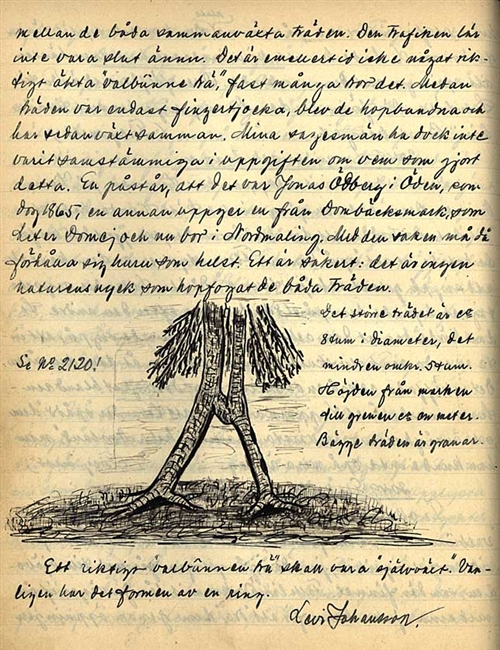 mellan de båda sammanväxta träden. Den trafiken lär
inte vara slut ännu. Det är emellertid icke något rik-
tigt äkta "valbünne trä", fast många tror det. Medan
träden var endast fingertjocka, blev de hopbundna och
har sedan växt samman. Mina sagesmän ha dock inte
varit samstämmiga i uppgiften om vem som gjort
detta. En påstår, att det var Jonas Ödberg i Öden, som
dog 1865, en annan uppger en från Dombäcksmark, som
heter Domeij och nu bor i Nordmaling. Med den saken må då
förhålla sig huru som helst. Ett är säkert: det är ingen
naturens nyck som hopfogat de båda träden.
Det större trädet är c:a
8 tum i diameter, det
mindre omkr. 5 tum.
Höjden från marken
till grenen c:a en meter.
Bägge träden är granar.
Se No 2120!
Ett riktigt "valbünnen trä" skall vara "självväxt". Van-
ligen har det formen av en ring.
Levi Johansson.